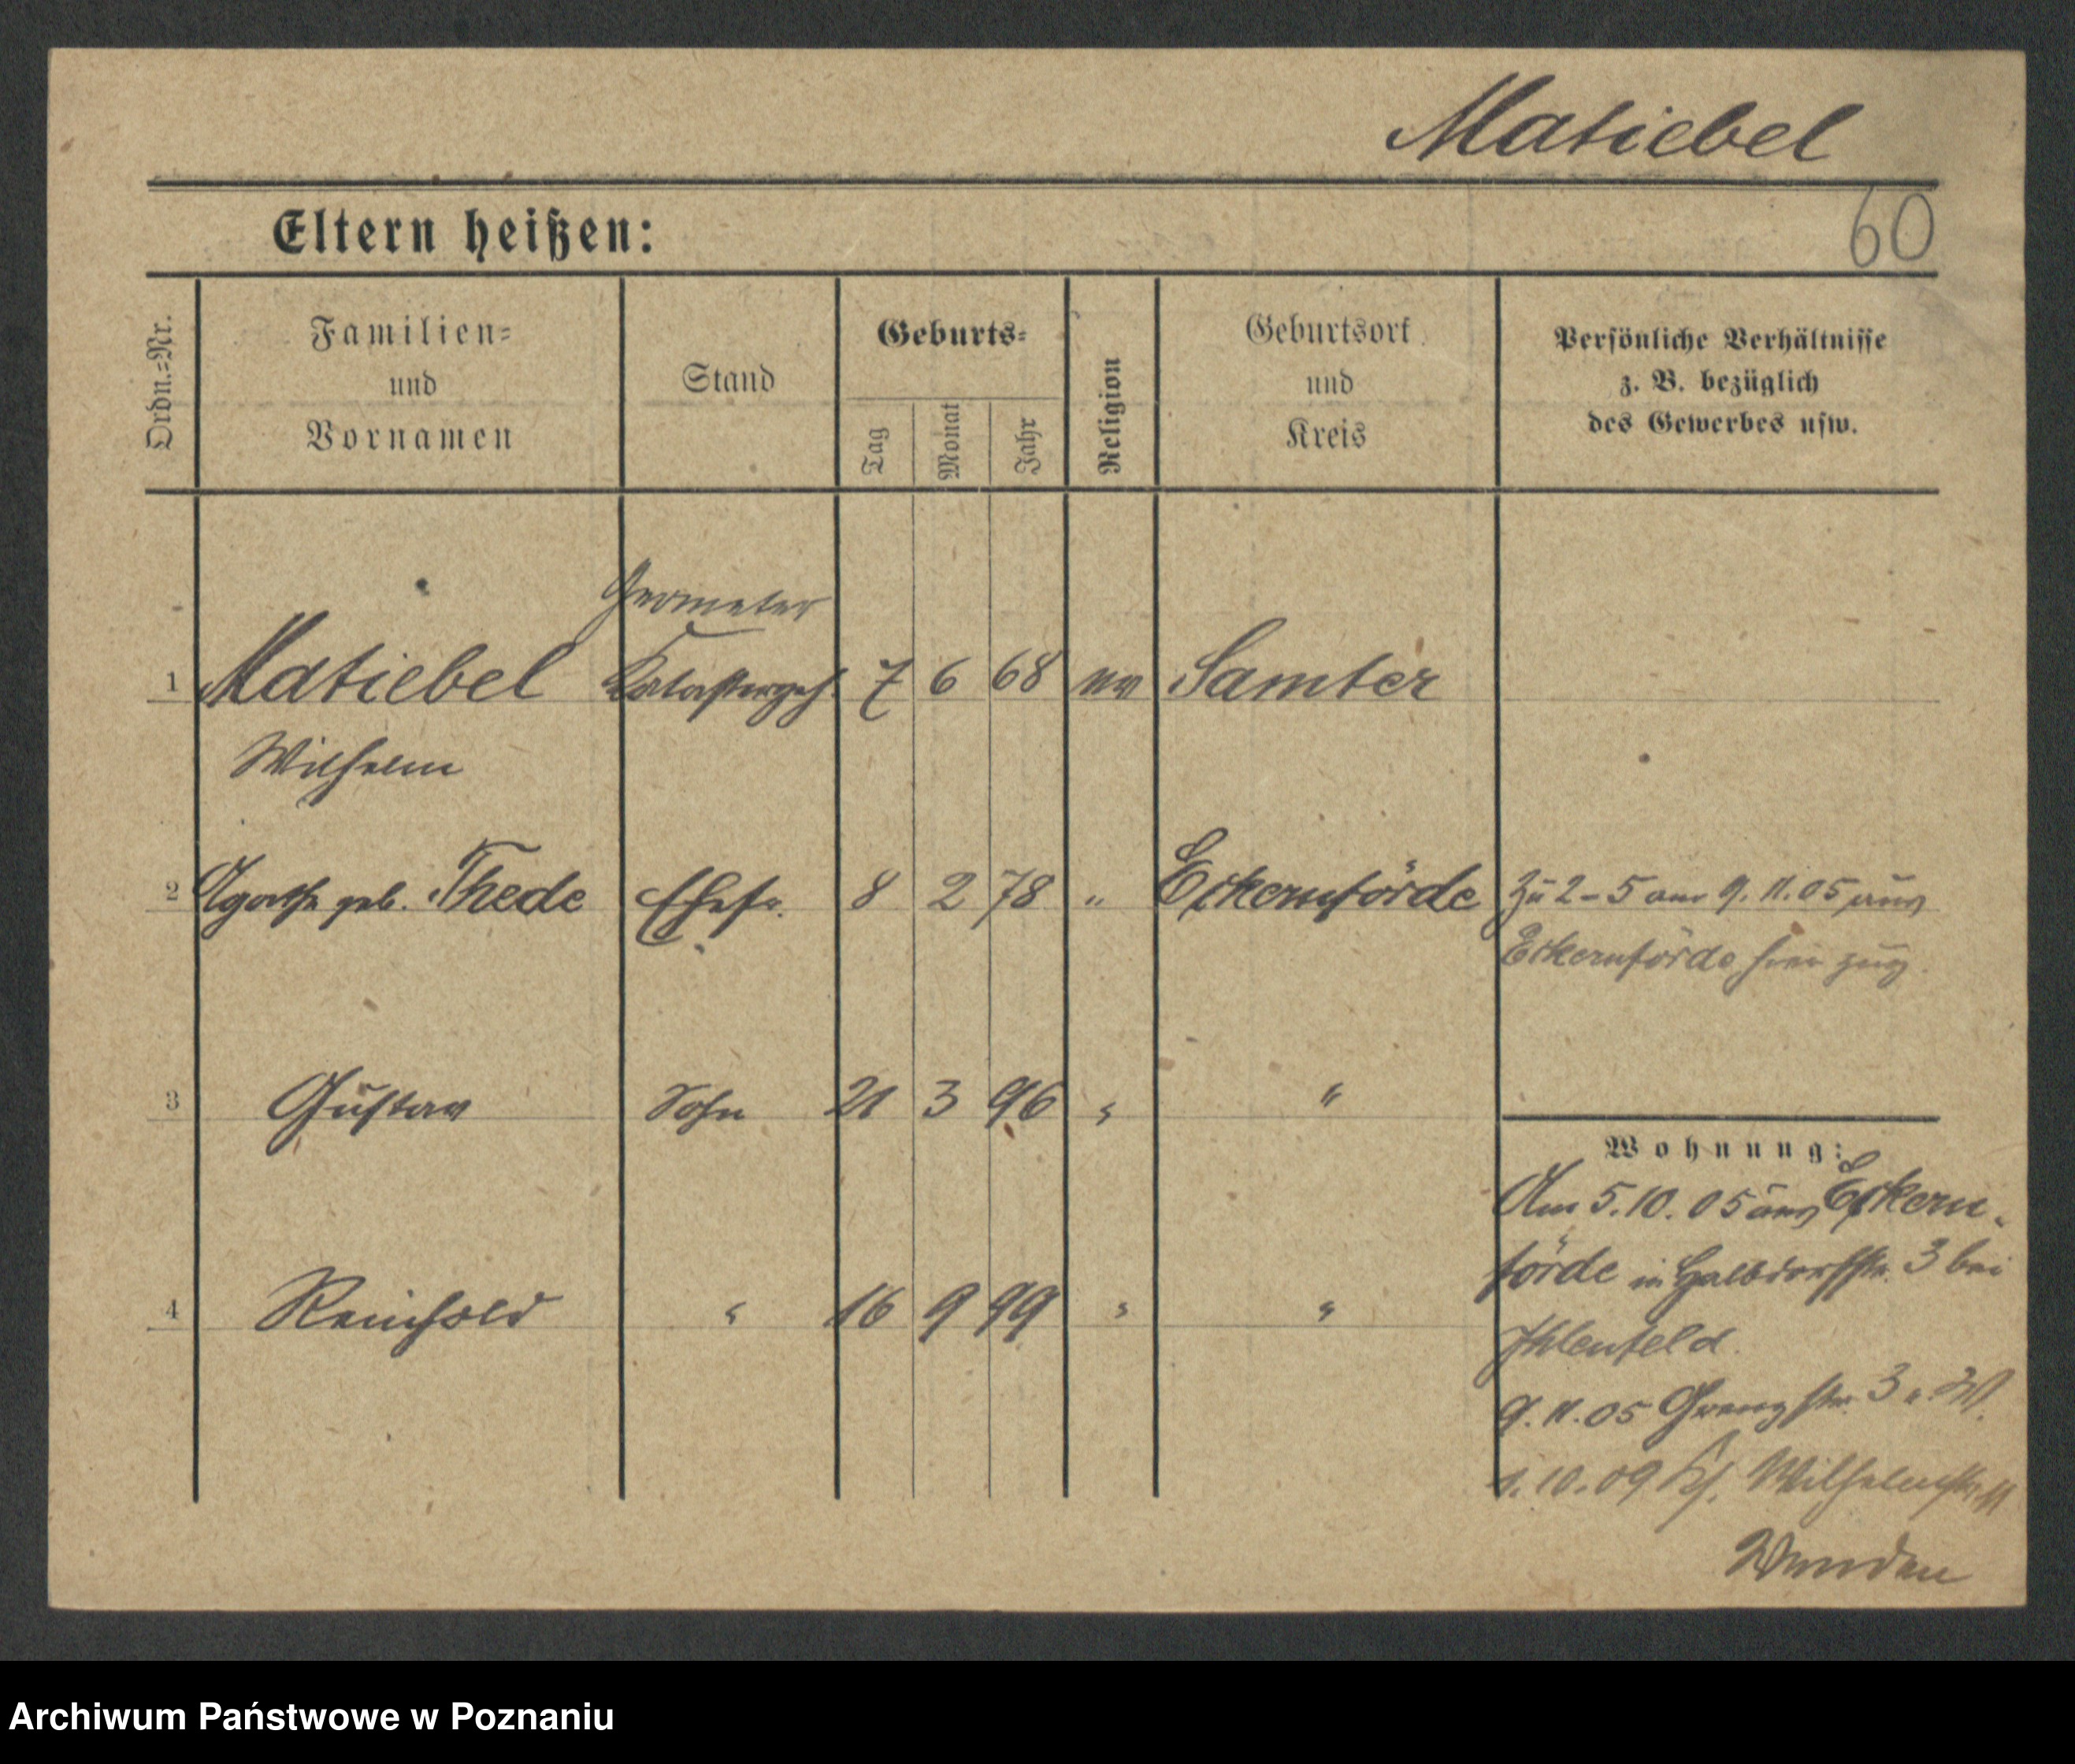 Matiebel
Eltern heißen:
60
Ordn.=Nr.
Familien=
und
Vornamen
Stand
Geburts=
Tag
Monat
Jahr
Religion
Geburtsort
und
Kreis
Persönliche Verhältnisse
z. B. bezüglich
des Gewerbes usw.
Geometer
1 Matiebel Katastergeh. 7 6 68 ev Samter
Wilhelm
2 Agathe geb. Thede Ehefr. 8 2 78 " Eckernförde Zu 2-5 am 9.11.05 aus
Eckernförde hier zug.
3 Gustav Sohn 21 3 96 " "
Wohnung:
Am 5.10.05 aus Eckern-
förde in Halbdorfstr. 3 bei
4 Reinhold " 16 9 99 " "
Ihlenfeld.
9.11.05 Grenzstr. 3
1.10.09 Wilhelmstr. 11